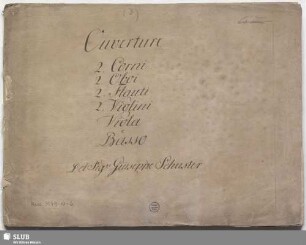 Ouverture
2. Corni
2. Oboi
2. Flauti
2. Violini
Viola
Basso
Del Sigr. Giuseppe Schuster
SLUB